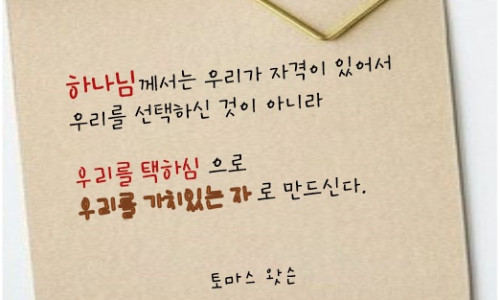 하나님께서는 우리가 자격이 있어서
우리를 선택하신 것이 아니라
우리를 택하심 으로
우리를 가치있는 자 로 만드신다.
토마스 왓슨